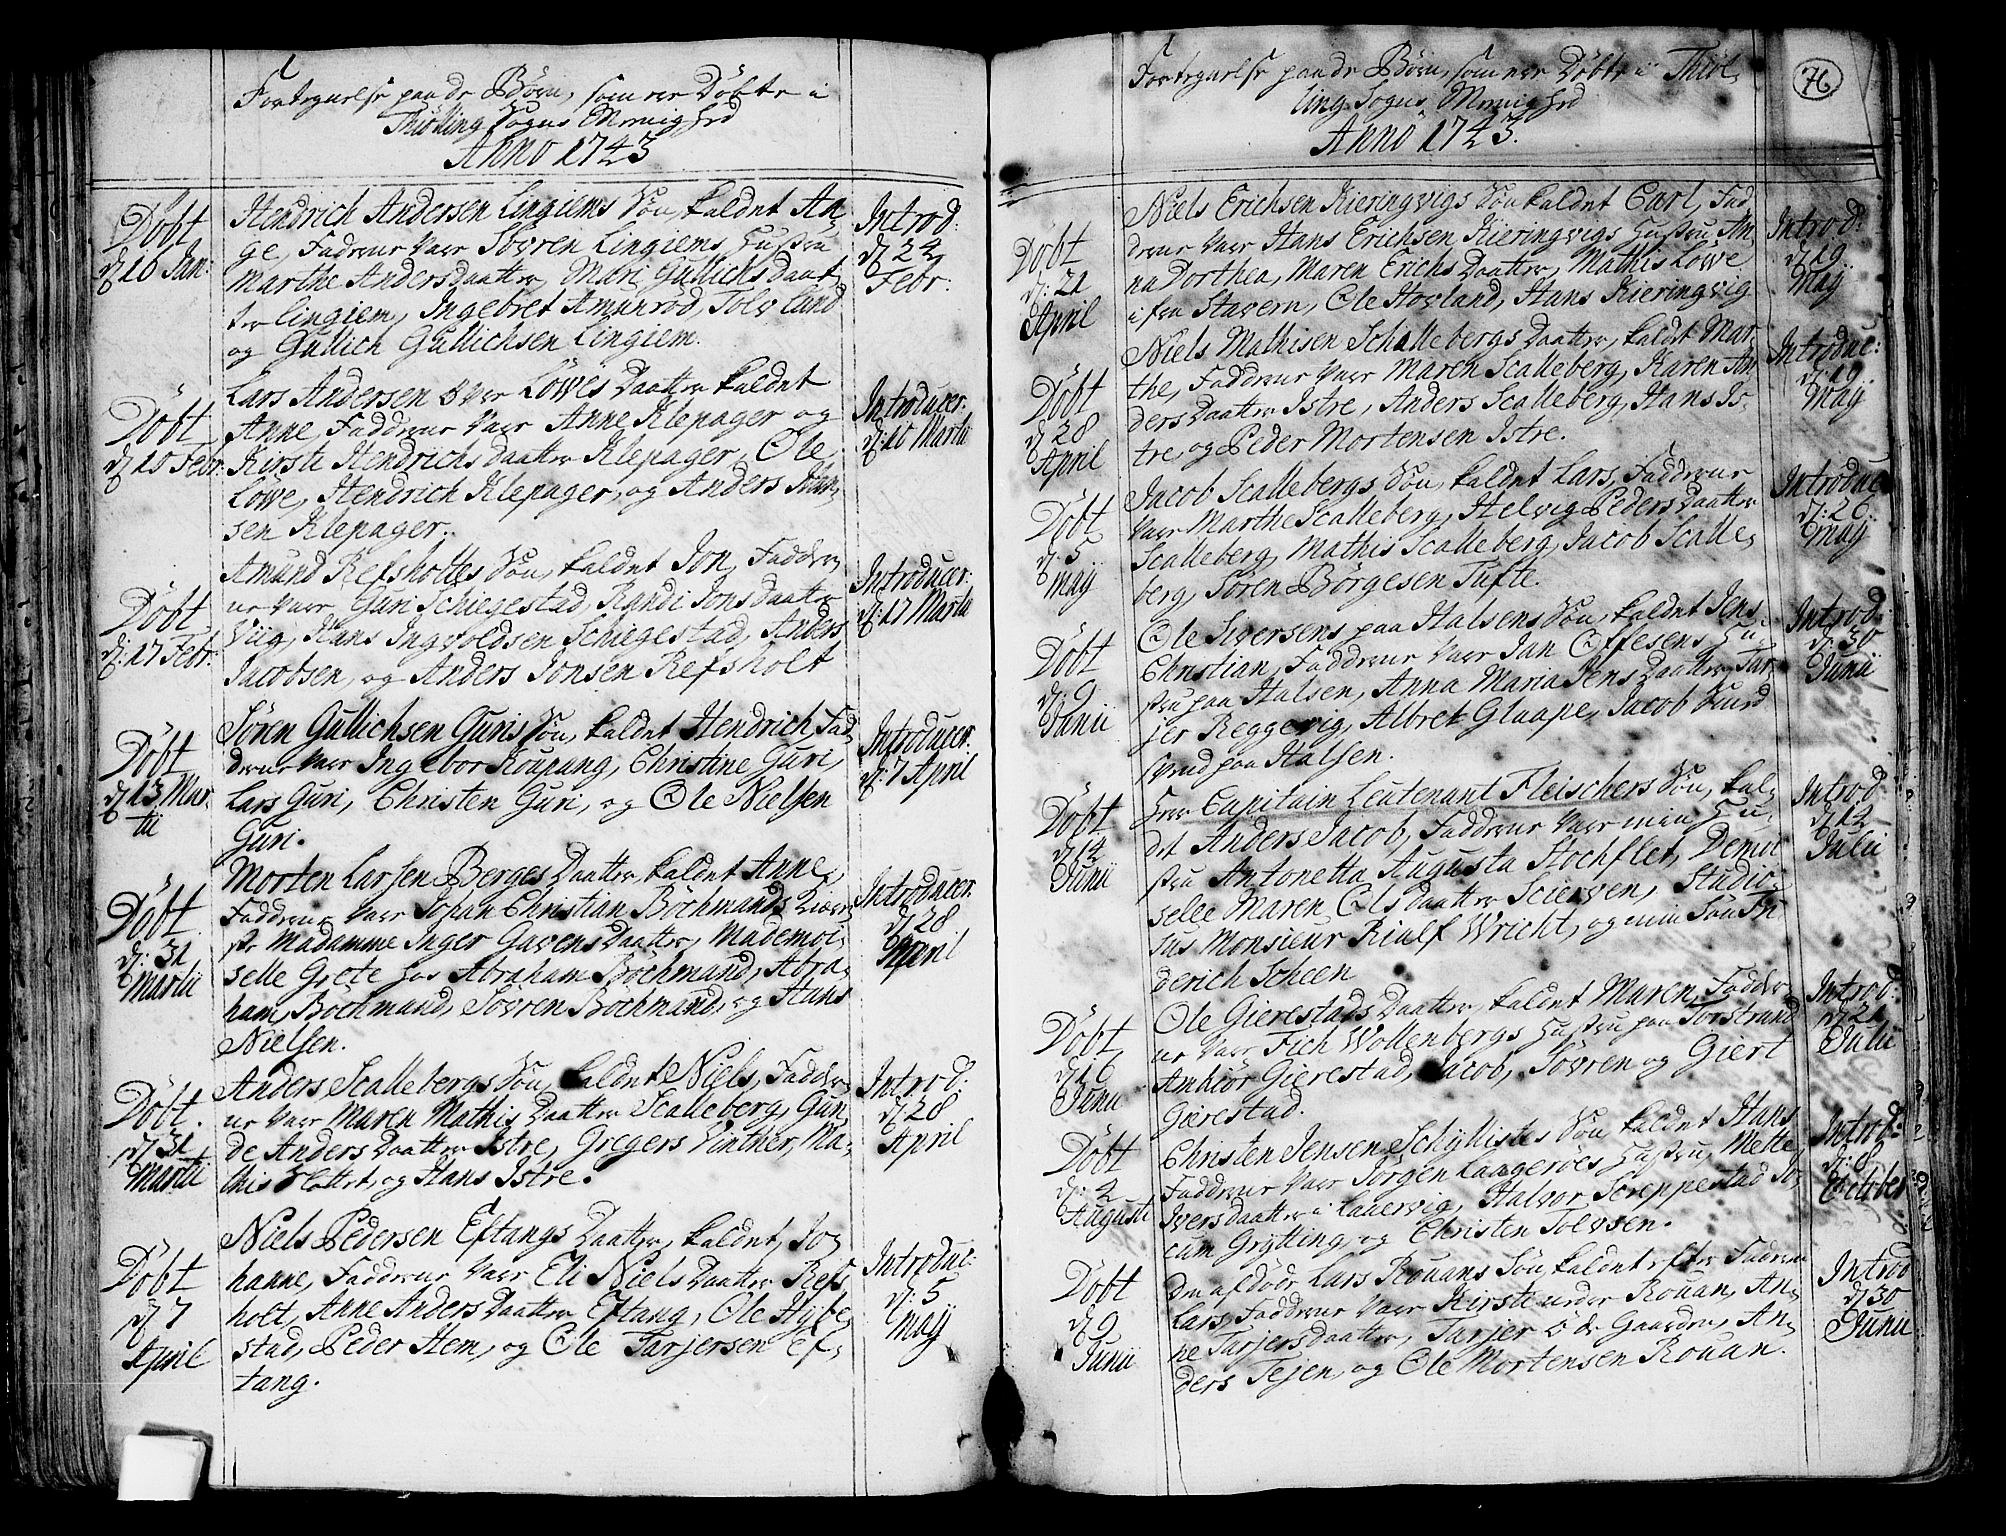 Fortegnelse paa de Börn, som ere Döbte i
Thiölling Sogns Menighed
Anno 1743
Döbt
d: 10 Jan:
Hendrich Andersen Lingiems Sön, kaldet An-
ge, Faddrene vare Sövren Lingiems Hustru
Marthe Andersdaatter, Mari Gullichsdaat-
ter Lingiem, Ingebret Amunröd, Tolv Land
og Gullich Gullichsen Lingiem.
Introd:
d: 24
Febr:
Döbt
d: 10 Febr:
Lars Andersen Löwes Daatter kaldet
Anne, Faddrene vare Anne Klepager og
Kirsti Hendrichsdaatter Klepager, Ole
Löwe, Hendrich Klepager, og Anders Han-
sen Klepager.
Introducer:
d: 10 Martii
Döbt
d: 17 Febr:
Amund Refsholtes Sön, kaldet Jon, Faddre-
ne vare, Guri Schiegestad, Randi Jonsdaatter
Viig, Hans Ingvoldsen Schiegestad, Anders
Jacobsen, og Anders Jonsen Refsholt
Introducer:
d: 17 Martii
Döbt
d: 13 Mar-
tii
Sören Gullichsen Guris Sön, kaldet Hendrich, Fad-
drene vare Ingebor Koupang, Christine Guri,
Lars Guri, Christen Guri, og Ole Nielsen
Guri.
Introducer:
d: 7 April
Döbt
d: 31
Martii
Morten Larsen Berges Daatter, kaldet Anne,
Faddrene vare Johan Christian Böchmands Kiere-
ste Madamme Inger Gavensdaatter, Mademoi-
selle Grete hos Abraham Böchmand, Abra-
ham Bochmand, Sövren Bochmand, og Hans
Nielsen.
Introducer:
d: 28
April
Döbt
d: 31
Martii
Anders Scallebergs Sön, kaldet Niels, Faddre-
ne vare Maren Mathisdaatter Scalleberg, Gun-
de Andersdaatter Istre, Gregers Vinther, Ma-
this Flottet, og Hans Istre.
Introd:
d: 28
April
Döbt
d: 7
April
Niels Pedersen Eftangs Daatter, kaldet Jo-
hanne, Faddrene vare Eli Nielsdaatter Refs-
holt, Anne Andersdaatter Eftang, Ole Hybe-
stad, Peder Hem, og Ole Tarjersen Ef-
tang.
Introduc:
d: 5
Maij
76
Fortegnelse paa de Börn, som ere Döbte i Thiöl-
ling Sogns Menighed
Anno 1743.
Döbt
d: 21
April
Niels Erichsen Kieringvigs Sön kaldet Carl, Fad-
drene vare Hans Erichsen Kieringvigs Hustru An-
na Dorthea, Maren Erichsdaatter, Mathis Löwe
ifra Stavern, Ole Hovland, Hans Kieringvig
Introd:
d: 19
Maij
Döbt
d: 28
April
Niels Mathisen Schallebergs Daatter, kaldet Mar-
the, Faddrene vare Maren Scalleberg, Karen An-
dersdaatter Istre, Anders Scalleberg, Hans Is-
tre, og Peder Mortensen Istre.
Introduc:
d: 19
Maij
Döbt
d: 5
Maij
Jacob Scallebergs Sön, kaldet Lars, Faddrene
vare Marthe Scalleberg, Helvig Pedersdaatter
Scalleberg, Mathis Scalleberg, Jacob Scalle-
berg, Sören Börgesen Tufte.
Introduc
d: 26
Maij
Döbt
d: 9
Junii
Ole Siversens paa Halsens Sön, kaldet Jens
Christian, Faddrene vare Jan Offesens Hu-
stru paa Halsen, Anna Maria Jensdaatter, Tar-
jer Reggevig, Albret Glaape, Jacob Sund
paa Halsen.
Introd:
d: 30
Junii
Döbt
d: 14
Junii
Herr Capitain Leutenant Fleischers Sön, kal-
det Anders Jacob, Faddrene vare min Hu-
stru Antonetta Augusta Hochflet, Demoi-
selle Maren Olsdaatter Scierven, Studio-
sus Monsieur Riulf Wricht, og min Sön Fri-
derich Scheen
Introd:
d: 12
Julii
Döbt
d: 16
Junii
Ole Gierestads Daatter, kaldet Maren, Faddre-
ne vare Fich Wollenbergs Hustru paa Torstrand
Ambiör Gierestad, Jacob, Sövren og Giert
Gierestad.
Introd:
d: 21
Julii
Döbt
d: 2
Augusti
Christen Jensen Schyllistes Sön kaldet Hans
Faddrene vare Jörgen Laageröes Hustru, Mette
Iversdaatter i Laurvig, Halvor Screppestad Jo-
cum Grytting, og Christen Tolvsen.
Introd:
d: 8
October
Döbt
d: 9
Junii
Den afdöde Lars Rouans Sön, kaldet efter Faderen
Lars, Faddrene vare Kirsti nedre Rouan, An-
ne Tarjersdaatter, Tarjer Gaarden, An-
ders Tejen, og Ole Mortensen Rouan.
Introd
d: 30
Junii